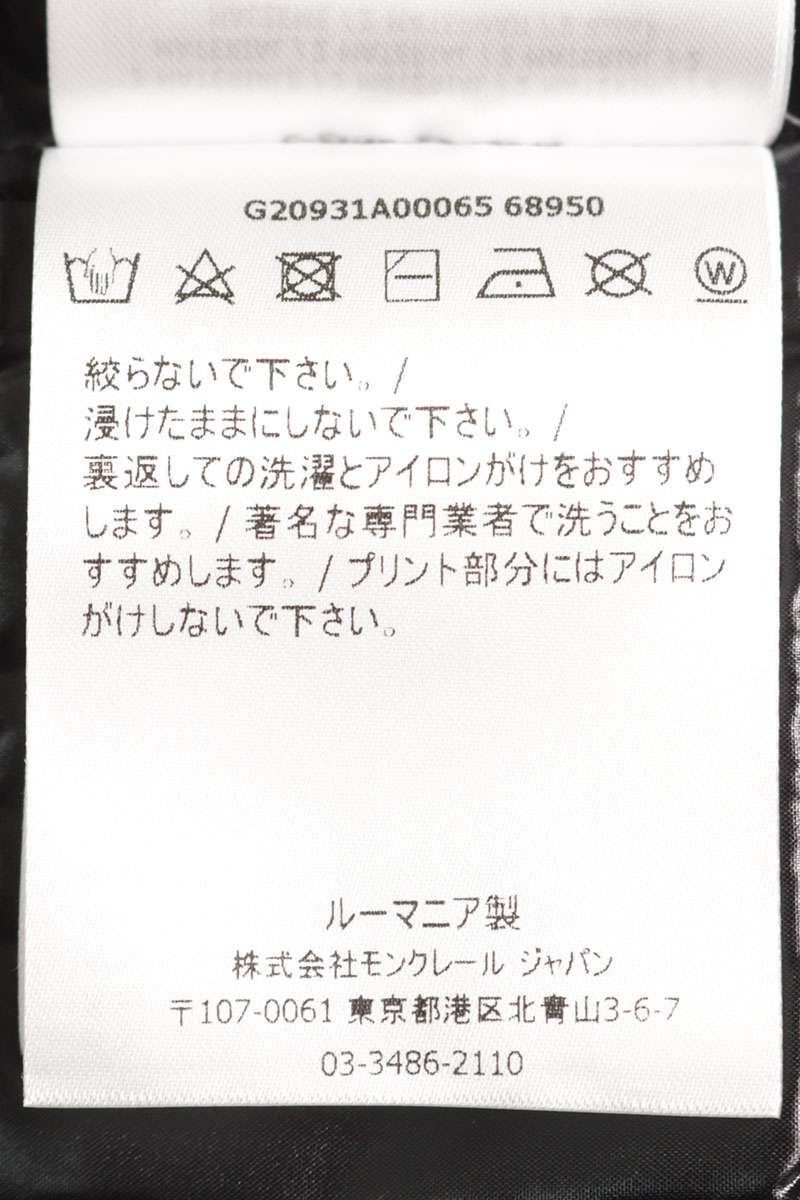 G20931A00065 68950
W
絞らないで下さい。/
浸けたままにしないで下さい。/
裏返しての洗濯とアイロンがけをおすすめ
します。/ 著名な専門業者で洗うことをお
すすめします。/ プリント部分にはアイロン
がけしないで下さい。
ルーマニア製
株式会社モンクレール ジャパン
〒107-0061 東京都港区北青山3-6-7
03-3486-2110